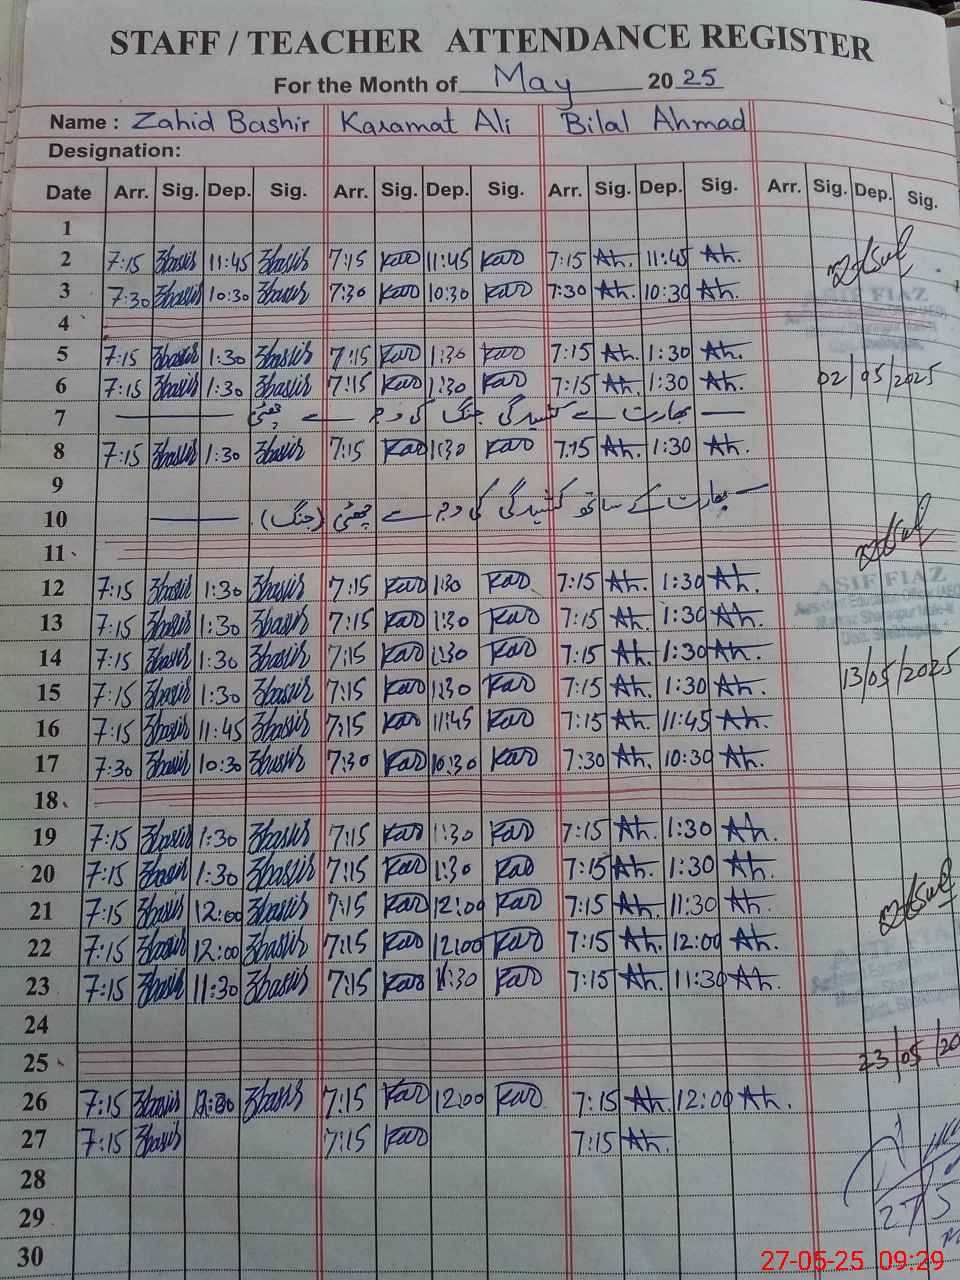 STAFF / TEACHER ATTENDANCE REGISTER
For the Month of May 2025
Name : Zahid Bashir Karamat Ali Bilal Ahmad
Designation:
Date Arr. Sig. Dep. Sig. Arr. Sig. Dep. Sig. Arr. Sig. Dep. Sig. Arr. Sig. Dep. Sig.
1
2 7:15 Zbasir 11:45 Zbasir 7:15 Kar 11:45 Kar 7:15 Ah. 11:45 Ah.
3 7:30 Zbasir 10:30 Zbasir 7:30 Kar 10:30 Kar 7:30 Ah. 10:30 Ah.
ASIF FIAZ
4
5 7:15 Zbasir 1:30 Zbasir 7:15 Kar 1:30 Kar 7:15 Ah. 1:30 Ah.
6 7:15 Zbasir 1:30 Zbasir 7:15 Kar 1:30 Kar 7:15 Ah. 1:30 Ah. 02/05/2025
7 بھارت سے کشیدگی جنگ کی وجہ سے چھٹی
8 7:15 Zbasir 1:30 Zbasir 7:15 Kar 1:30 Kar 7:15 Ah. 1:30 Ah.
9
10 بھارت کے ساتھ کشیدگی کی وجہ سے چھٹی (جنگ)
11
12 7:15 Zbasir 1:30 Zbasir 7:15 Kar 1:30 Kar 7:15 Ah. 1:30 Ah.
ASIF FIAZ
13 7:15 Zbasir 1:30 Zbasir 7:15 Kar 1:30 Kar 7:15 Ah. 1:30 Ah.
14 7:15 Zbasir 1:30 Zbasir 7:15 Kar 1:30 Kar 7:15 Ah. 1:30 Ah.
13/05/2025
15 7:15 Zbasir 1:30 Zbasir 7:15 Kar 1:30 Kar 7:15 Ah. 1:30 Ah.
16 7:15 Zbasir 11:45 Zbasir 7:15 Kar 11:45 Kar 7:15 Ah. 11:45 Ah.
17 7:30 Zbasir 10:30 Zbasir 7:30 Kar 10:30 Kar 7:30 Ah. 10:30 Ah.
18
19 7:15 Zbasir 1:30 Zbasir 7:15 Kar 1:30 Kar 7:15 Ah. 1:30 Ah.
20 7:15 Zbasir 1:30 Zbasir 7:15 Kar 1:30 Kar 7:15 Ah. 1:30 Ah.
21 7:15 Zbasir 12:00 Zbasir 7:15 Kar 12:00 Kar 7:15 Ah. 11:30 Ah.
22 7:15 Zbasir 12:00 Zbasir 7:15 Kar 12:00 Kar 7:15 Ah. 12:00 Ah.
23 7:15 Zbasir 11:30 Zbasir 7:15 Kar 11:30 Kar 7:15 Ah. 11:30 Ah.
24
25 23/05/20
26 7:15 Zbasir 12:00 Zbasir 7:15 Kar 12:00 Kar 7:15 Ah. 12:00 Ah.
27 7:15 Zbasir 7:15 Kar 7:15 Ah.
28
29 27/5
30
27-05-25 09:29